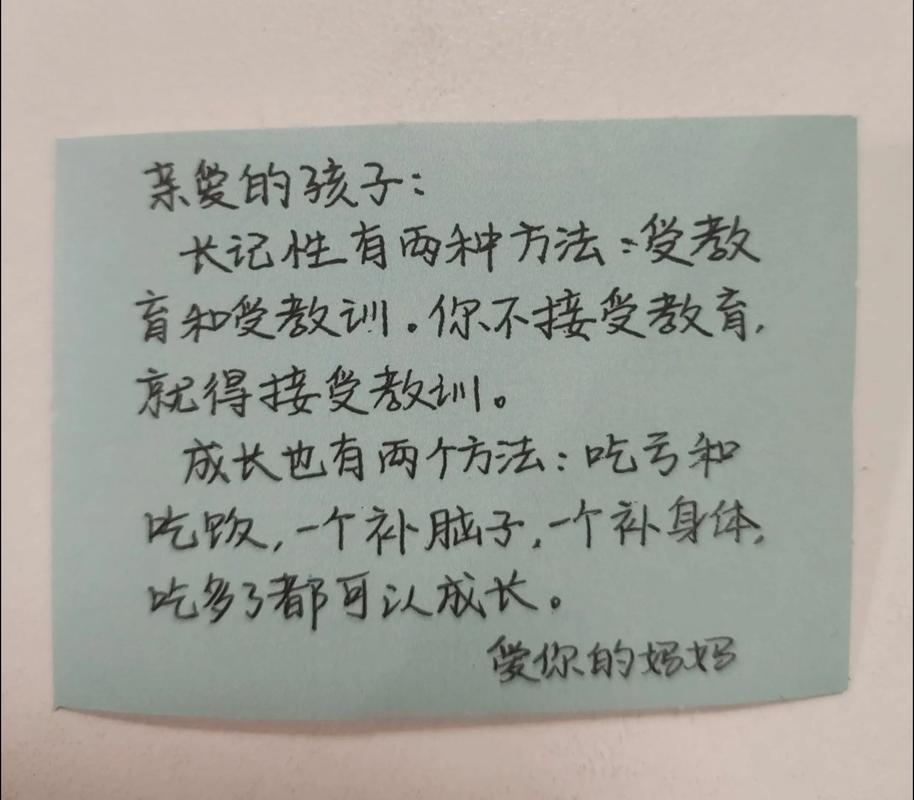 亲爱的孩子：
长记性有两种方法：受教
育和受教训。你不接受教育，
就得接受教训。
成长也有两个方法：吃亏和
吃饭，一个补脑子，一个补身体，
吃多了都可以成长。
爱你的妈妈